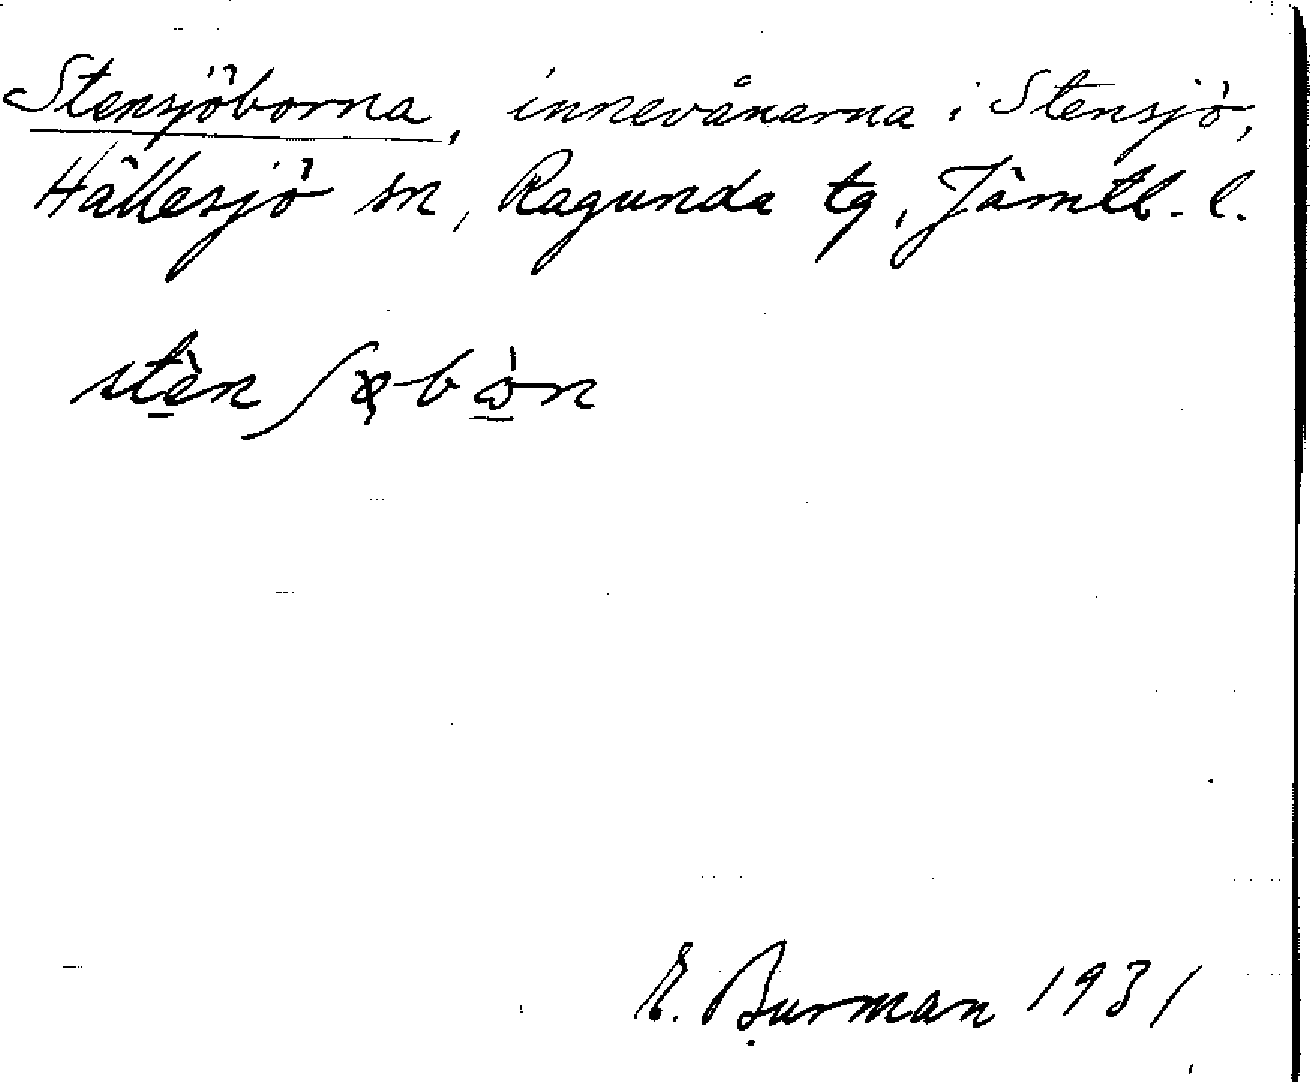 Stensjöborna, innevånarna i Stensjö,
Hällesjö sn, Ragunda tg, Jämtl. l.
E. Burman 1931